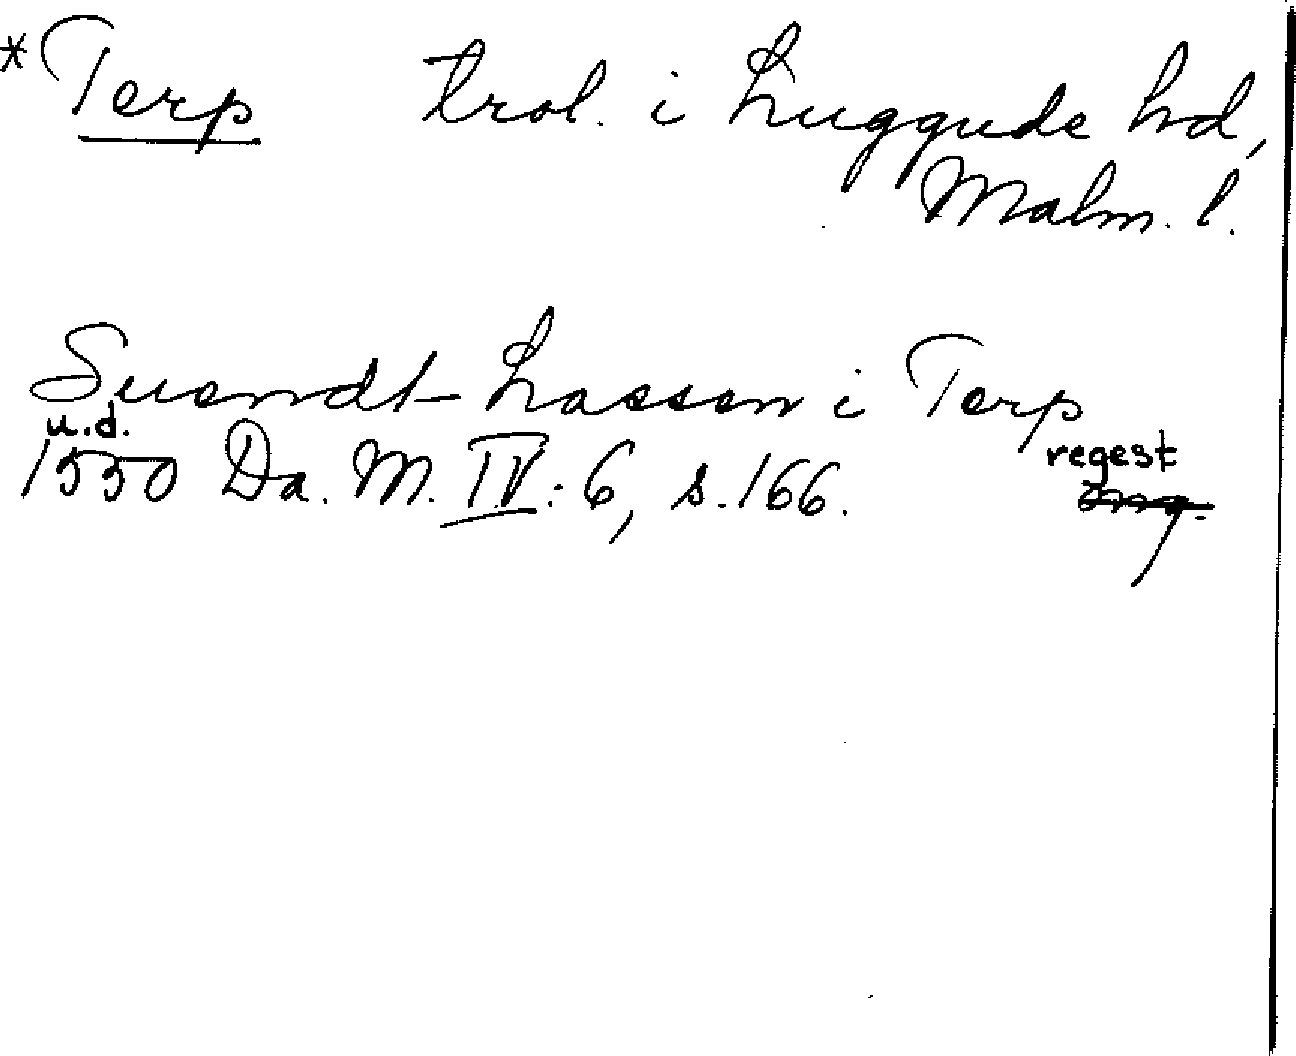 *Terp trol. i Luggude hd,
Malm. l.
Suendt Lassen i Terp
u.d. regest
1550 Da. M. IV: 6, s. 166.